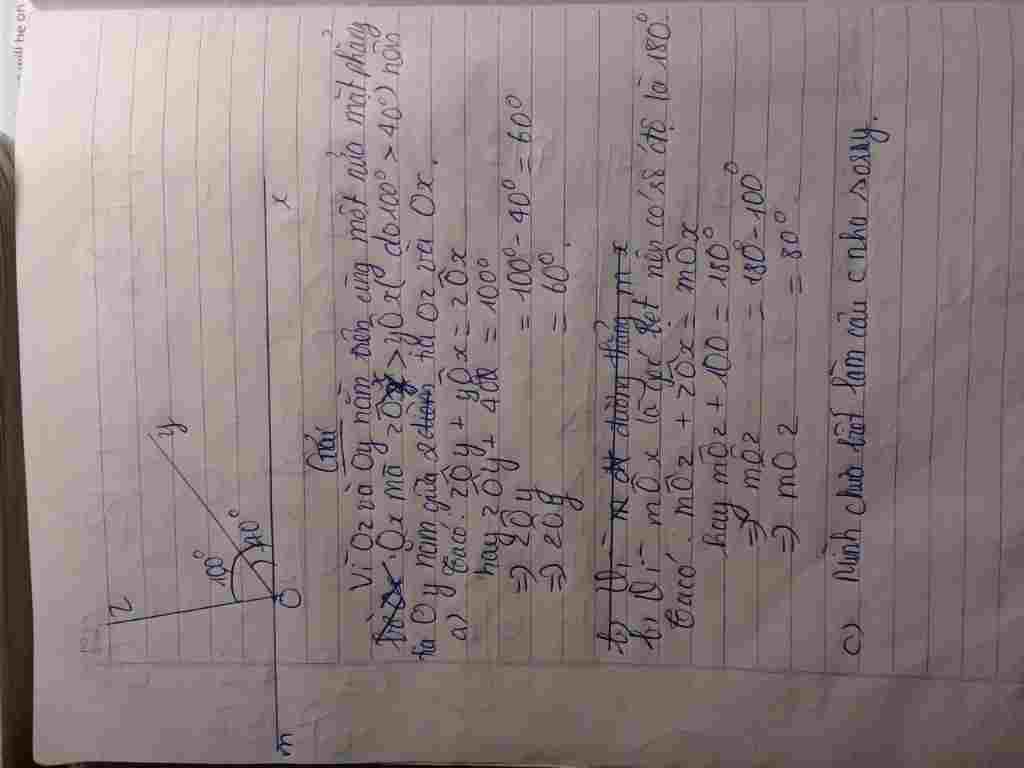 z
y
100°
40°
m
O
x
Giải
Vì Oz và Oy nằm trên cùng một nửa mặt phẳng
bờ Ox mà zOx > yOx (do 100° > 40°) nên
tia Oy nằm giữa tia Oz và Ox.
a) Ta có: zOy + yOx = zOx
hay zOy + 40 = 100°
=> zOy = 100° - 40° = 60°
=> zOy = 60°.
b) Vì mOx là góc bẹt nên có số đo độ là 180°.
Ta có: mOz + zOx = mOx
hay mOz + 100 = 180°
=> mOz = 180° - 100°
=> mOz = 80°.
c) Mình chưa biết làm câu c nhu sorry.